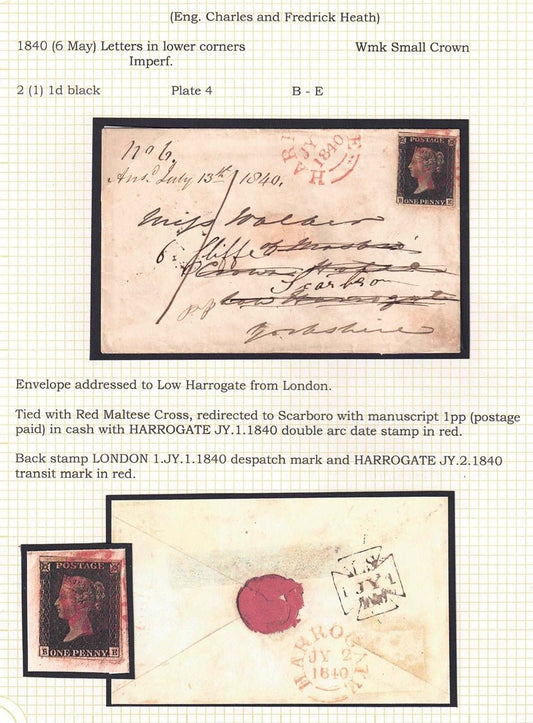 (Eng. Charles and Fredrick Heath)
1840 (6 May) Letters in lower corners Wmk Small Crown
Imperf.
2 (1) 1d black Plate 4 B - E
No 6.
HARROGATE
JY
1840
POSTAGE
B ONE PENNY E
Ansd July 13th 1840.
1
Miss Walker
6. Cliffe
Crown Hotel
Scarbro
pp Low Harrogate
Yorkshire
Envelope addressed to Low Harrogate from London.
Tied with Red Maltese Cross, redirected to Scarboro with manuscript 1pp (postage
paid) in cash with HARROGATE JY.1.1840 double arc date stamp in red.
Back stamp LONDON 1.JY.1.1840 despatch mark and HARROGATE JY.2.1840
transit mark in red.
POSTAGE
B ONE PENNY E
1 JY 1
HARROGATE
JY 2
1840